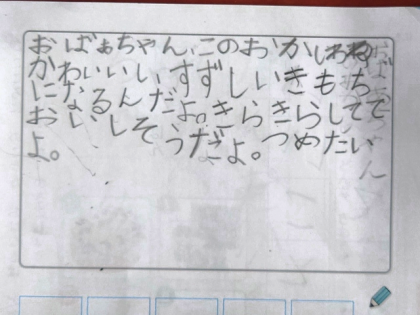 おばぁちゃん、このおかしわね
かわいいしいすずしいきもち
になるんだよ。きらきらしてて
おいしそうだよ。つめたい
よ。